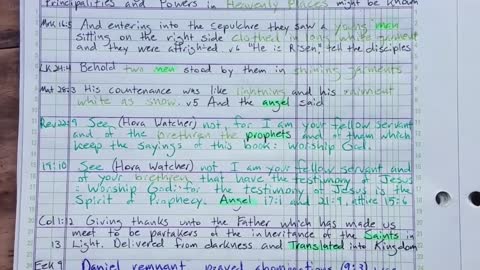 Principalities and Powers in Heavenly Places might be known
Mrk 16:5 And entering into the Sepulchre they saw a young man
sitting on the right side clothed in long white garment
and they were affrighted. v6 "He is Risen," tell the disciples
LK 24:4 Behold two men stood by them in shining garments
Mat 28:3 His countenance was like lightning and his raiment
white as snow. v5 And the angel said
Rev 22:9 See (Hora Watcher) not, for I am your fellow servant
and of the brethren the prophets and of them which
keep the sayings of this book: Worship God.
19:10 See (Hora Watcher) not I am your fellow servant and
of your brethren that have the testimony of Jesus
: Worship God: for the testimony of Jesus is the
Spirit of Prophecy. Angel 17:1 and 21:9, attire 15:6
Col 1:12 Giving thanks unto the Father which has made us
meet to be partakers of the inheritance of the Saints in
13 Light. Delivered from darkness and Translated into Kingdom
Ezk 9 Daniel remnant prayed abominations (9:3)